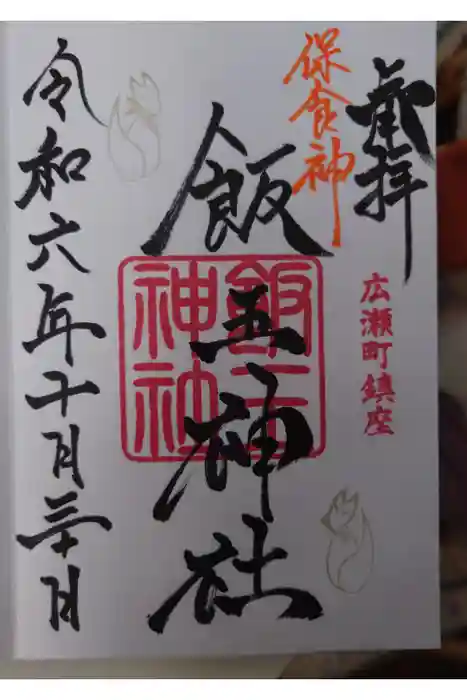 奉拝
保食神
広瀬町鎮座
飯玉神社
飯玉
神社
令和六年十月三十日